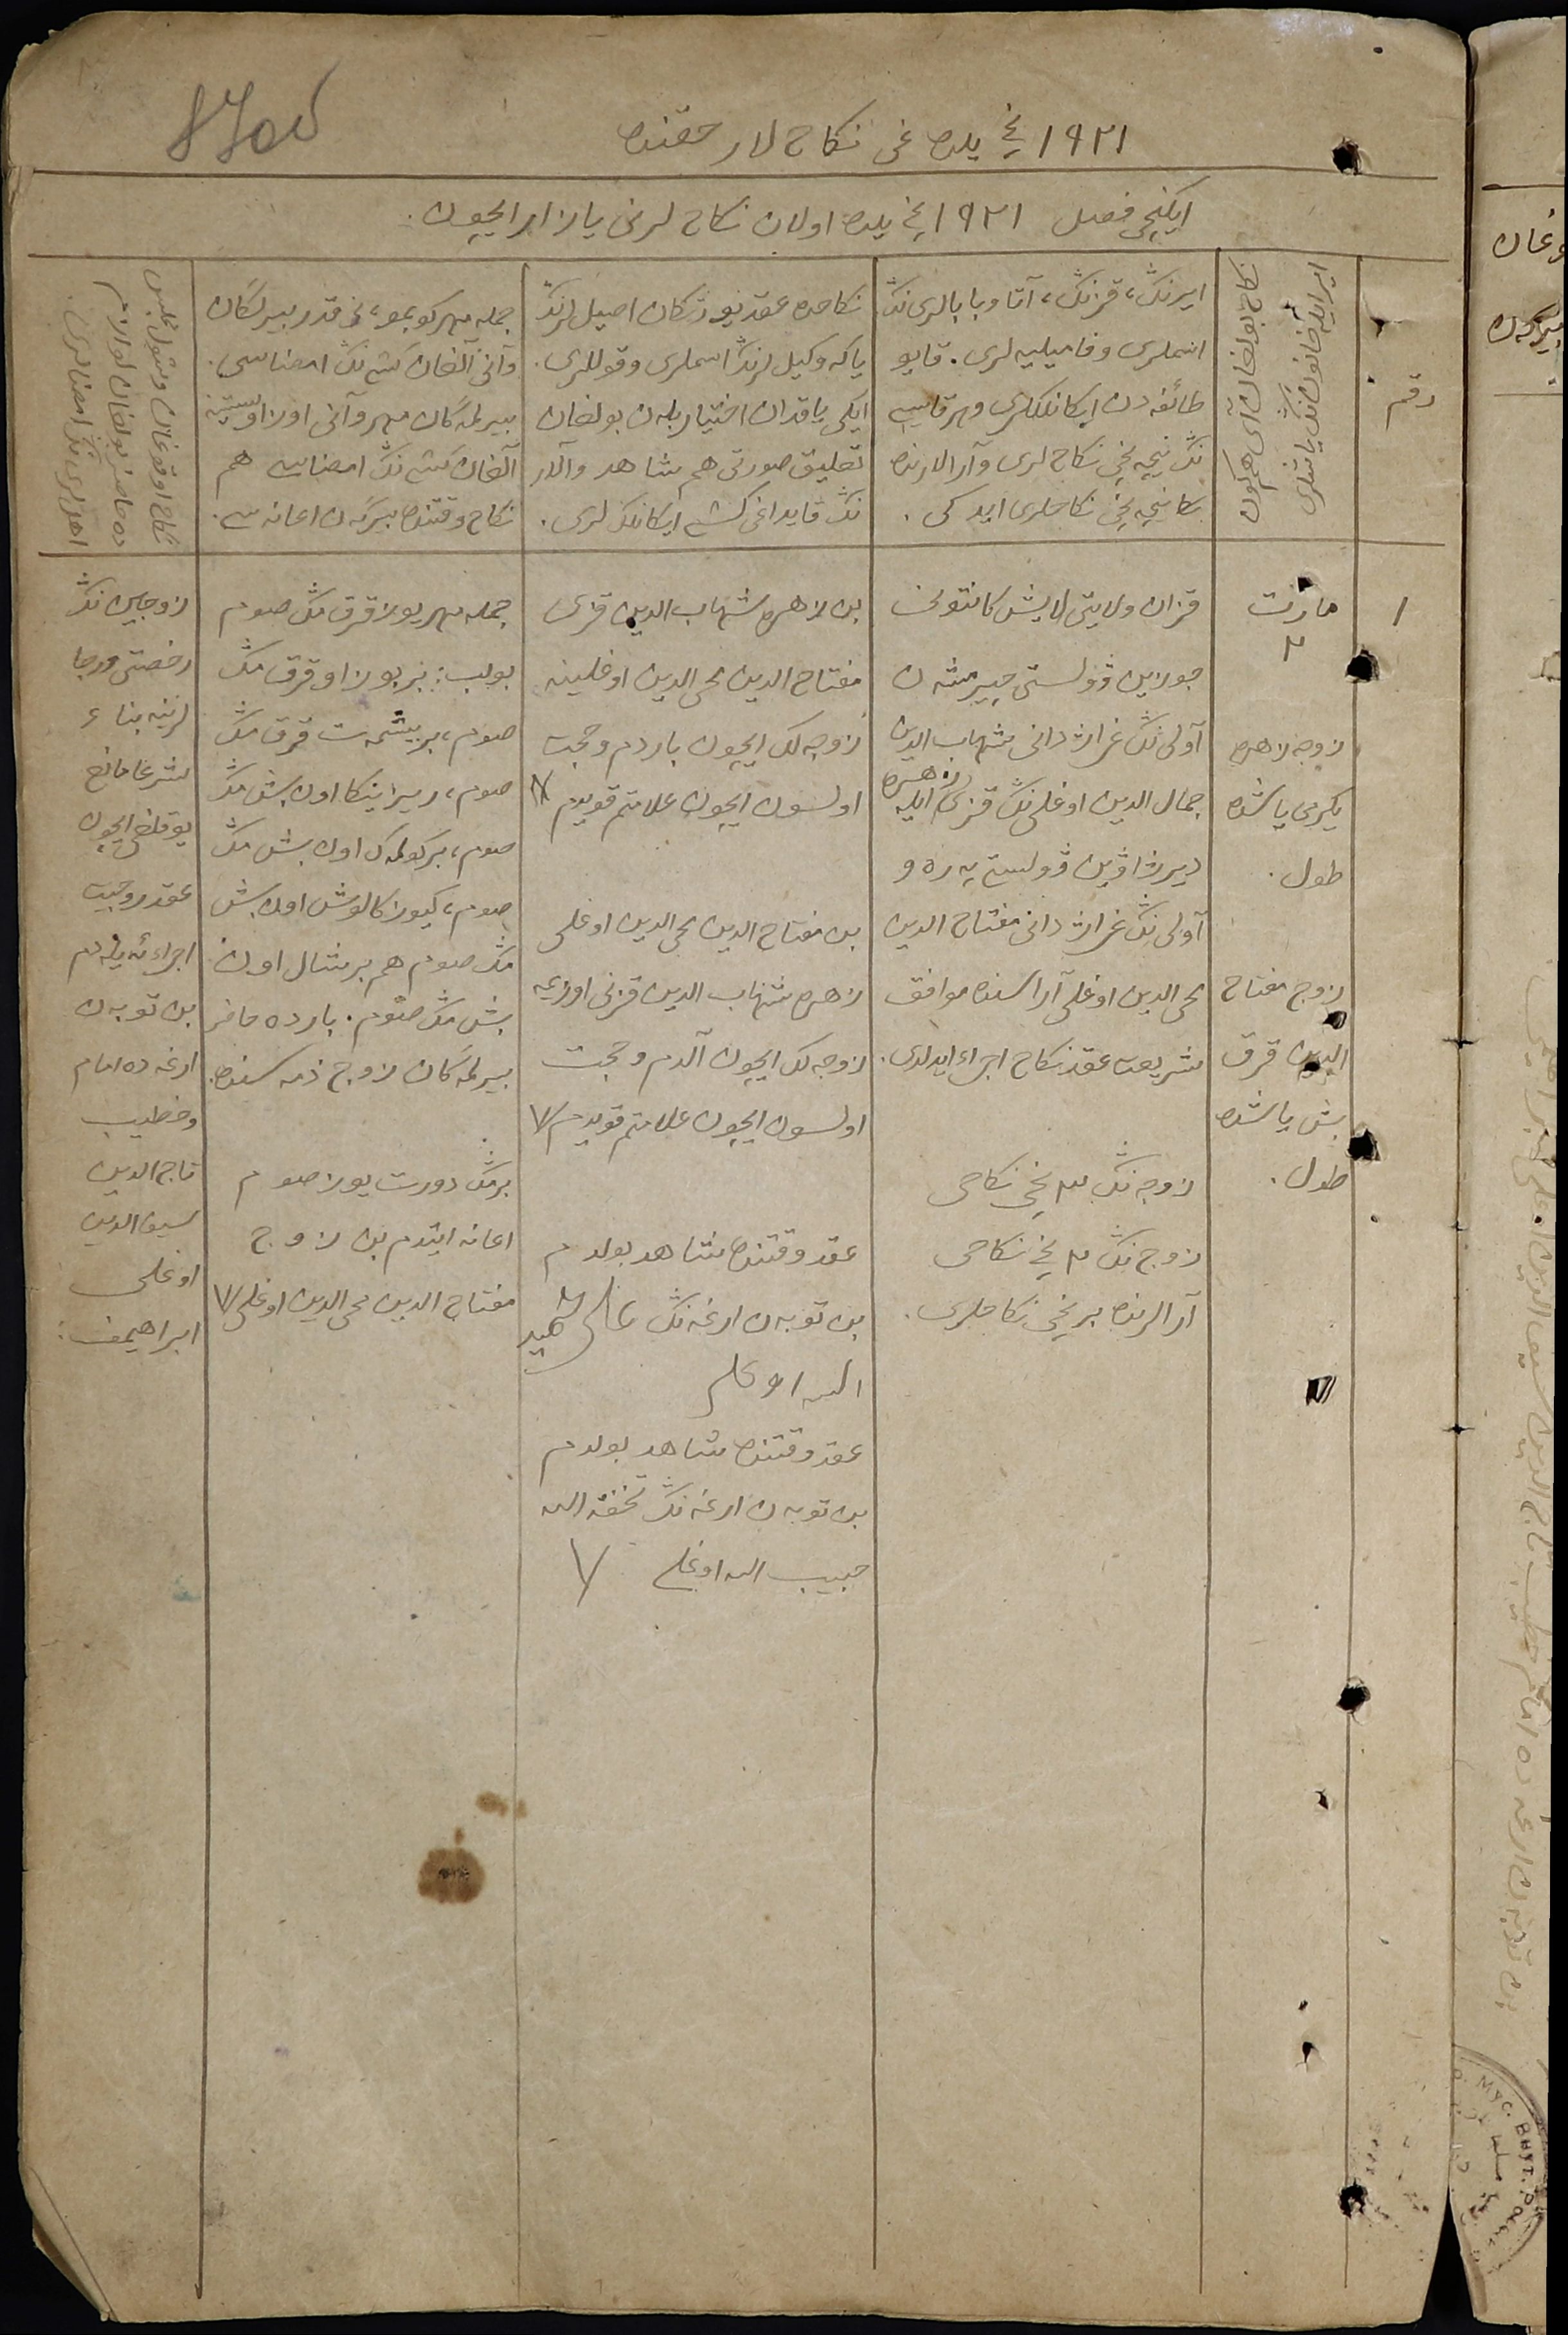 ١٩٢١ نچی یلده غی نکاح لار حقنده
ایکنچی فصل ١٩٢١ نچی یلده اولان نکاح لرنی یازار ایچون.
رقم
ایر ایله خاتون نڭ یاشلری
ایرنڭ، قزنڭ، آتا و بابالری نڭ
اسملری و فامیلیه لری. قایو
طائفه دن ایکانلکلری وهر قایسی
نڭ نیچه نچی نکاح لری و آرالارنده
نیچه نچی نکاحلری ایدکی.
نکاحده عقد یورتکان اصیل لرنڭ
یاکه وکیل لرنڭ اسملری و قوللری.
ایکی یاقدان اختیار بله ن بولغان
تعلیق صورتی هم شاهد و آلار
نڭ قایداغی کشی ایکانلک لری.
جمله مهر کوبمو، نی قدر بیرلگان
و آنی آلغان کشی نڭ امضاسی.
بیرلمه گان مهر و آنی اوز اوستینه
آلغان کشی نڭ امضاسی هم
نکاح وقتنده بیرگه ن اعانه سی.
نکاح اوقوغان و شول مجلس
ده حاضر بولغان لوازم
اهل لری نڭ امضالری.
١
مارت
٢
زوجه زاهره
یگرمی یاشنده
طول.
زوج مفتاح
الدین قرق
بش یاشنده
طول.
قزان ولایتی لایش کانتونی
جورین ڤولستی چیرمشه ن
آولی نڭ غراژدانی شهاب الدین
جمال الدین اوغلی نڭ قزی زاهره ایله
دیرژاوین ڤولستی یه ره و
آولی نڭ غراژدانی مفتاح الدین
محی الدین اوغلی آراسنده موافق
شریعت عقد نکاح اجراء ایدلدی.
زوجه نڭ ٢ نچی نکاحی
زوج نڭ ٢ نچی نکاحی
آرالرنده برنچی نکاحلری.
بن زاهره شهاب الدین قزی
مفتاح الدین محی الدین اوغلینه
زوجه لک ایچون باردم و حجت
اولسون ایچون علامتم قویدم
بن مفتاح الدین محی الدین اوغلی
زاهره شهاب الدین قزنی اوزیمه
زوجه لک ایچون آلدم و حجت
اولسون ایچون علامتم قویدم
عقد وقتنده شاهد بولدم
بن توبه ن ارغه نڭ
الله اوغلی
عقد وقتنده شاهد بولدم
بن توبه ن ارغه نڭ تحفة الله
حبیب الله اوغلی
جمله مهر یوز قرق مڭ صوم
بولب: بر بوزاو قرق مڭ
صوم، بر بیشمه ت قرق مڭ
صوم، ریزینکا اون بش مڭ
صوم، بر کولمه ک اون بش مڭ
صوم، کیوز کالوش اون بش
مڭ صوم هم بر شال اون
بش مڭ صوم. بارده حاضر
بیرلمه گان زوج ذمه سنده.
بر مڭ دورت یوز صوم
اعانه ایتدم بن زوج
مفتاح الدین محی الدین اوغلی
زوجین نڭ
رخصتی و رجا
لرینه بناء
شرعا مانع
یوقلغی ایچون
عقد زوجیت
اجراء ئه یله دم
بن توبه ن
ارغه ده امام
و خطیب
تاج الدین
سیف الدین
اوغلی
ابراهیمف.